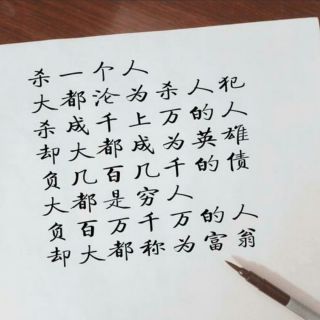 杀一个人
大都沦为杀人犯
杀成千上万的人
却大都成为英雄
负几百几千的债
大都是穷人
负百万千万的人
却大都称为富翁